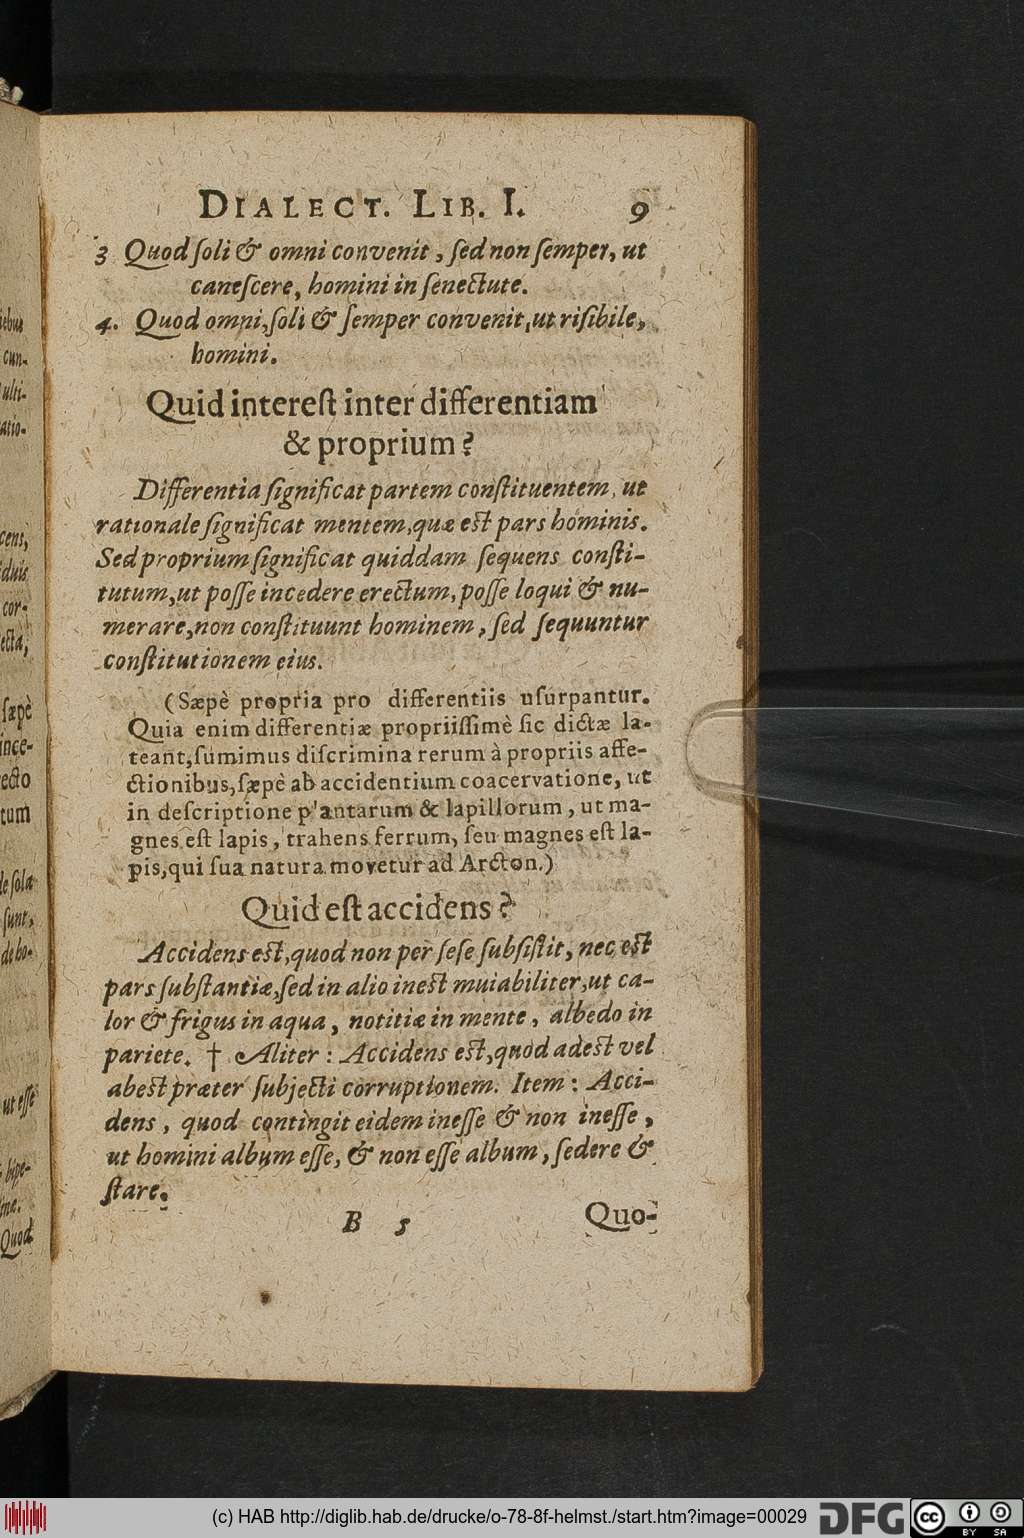 DIALECT. LIB. I. 9
3 Quod ſoli & omni convenit, ſed non ſemper, ut
caneſcere, homini in ſenectute.
4. Quod omni, ſoli & ſemper convenit, ut riſibile,
homini.
Quid intereſt inter differentiam
& proprium?
Differentia ſignificat partem conſtituentem, ut
rationale ſignificat mentem, quæ eſt pars hominis.
Sed proprium ſignificat quiddam ſequens conſti-
tutum, ut poſſe incedere erectum, poſſe loqui & nu-
merare, non conſtituunt hominem, ſed ſequuntur
conſtitutionem eius.
(Sæpè propria pro differentiis uſurpantur.
Quia enim differentiæ propriiſſimè ſic dictæ la-
teant, ſumimus diſcrimina rerum à propriis affe-
ctionibus, ſæpè ab accidentium coacervatione, ut
in deſcriptione p'antarum & lapillorum, ut ma-
gnes eſt lapis, trahens ferrum, ſeu magnes eſt la-
pis, qui ſua natura movetur ad Arcton.)
Quid eſt accidens?
Accidens eſt, quod non per ſeſe ſubſiſtit, nec eſt
pars ſubſtantiæ, ſed in alio ineſt muiabiliter, ut ca-
lor & frigus in aqua, notitiæ in mente, albedo in
pariete. † Aliter: Accidens eſt, quod adeſt vel
abeſt præter ſubjecti corruptionem. Item: Acci-
dens, quod contingit eidem ineſſe & non ineſſe,
ut homini album eſſe, & non eſſe album, ſedere &
ſtare.
B 5 Quo-
(c) HAB http://diglib.hab.de/drucke/o-78-8f-helmst./start.htm?image=00029
DFG
cc BY SA